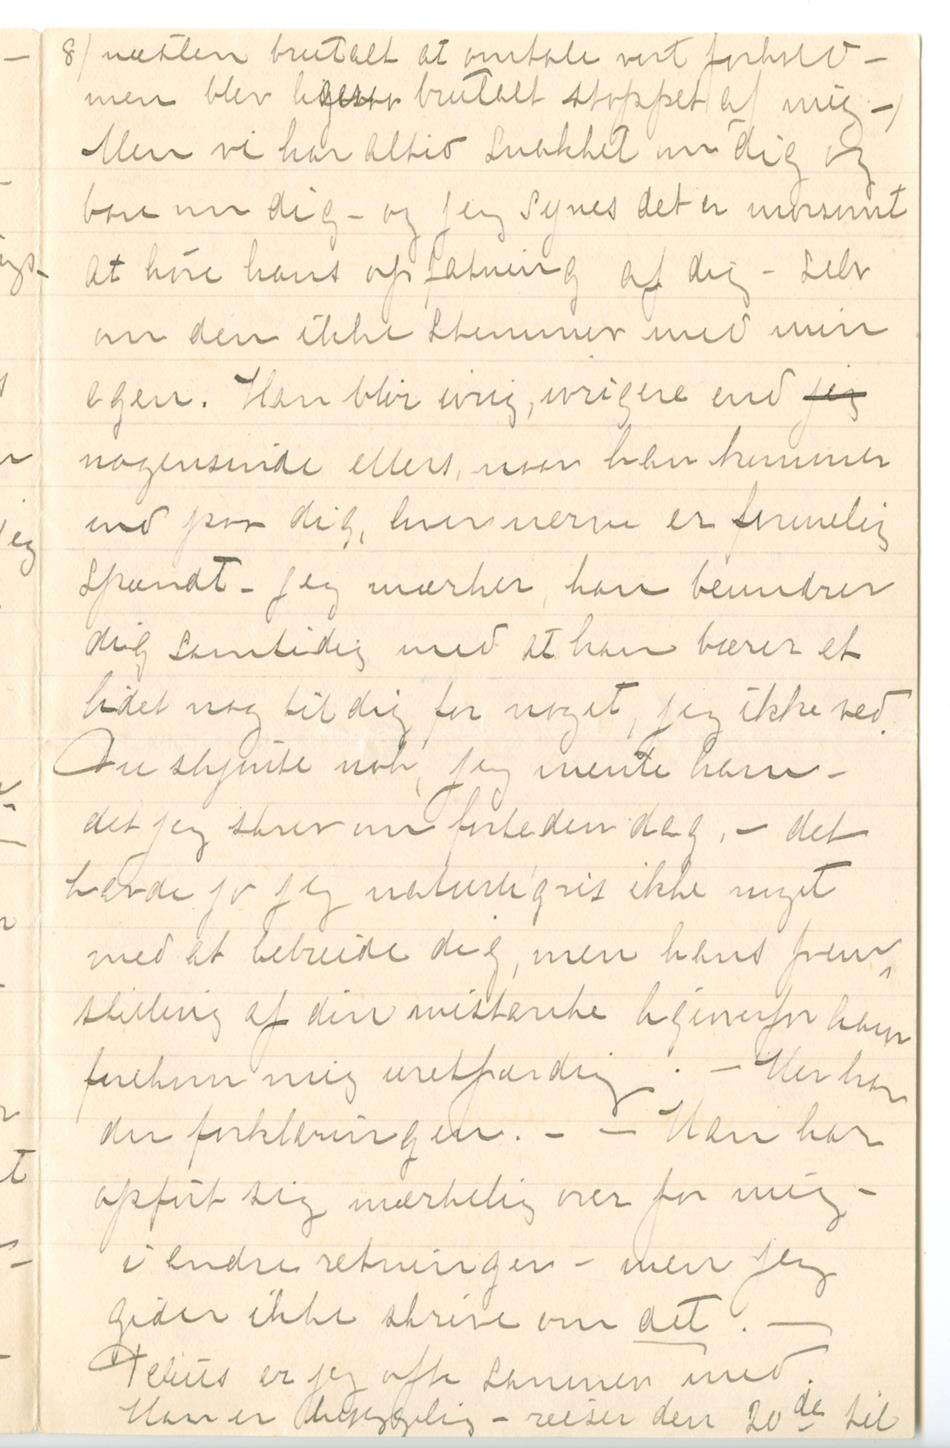 8) næsten brutalt at omtale vort forhold –
men blev ligesaa brutalt stoppet af mig –)
Men vi har altid snakket om dig og
bare om dig – og jeg synes det er morsomt
at høre hans opfatning af dig – selv
om den ikke stemmer med min
egen. Han blir ivrig, ivrigere end jeg
nogensinde ellers, naar han kommer
ind paa dig, hver nerve er formelig
spændt – jeg mærker, han beundrer
dig samtidig med at han bærer et
lidet nag til dig for noget, jeg ikke ved.
Du skjønte nok, jeg mente ham –
det jeg skrev om forleden dag, – det
havde jo jeg naturligvis ikke noget
med at bebreide dig, men hans frem-
stilling af din mistanke ligeoverfor ham
forekom mig uretfærdig. – Her har
du forklaringen. – – Han har
opført sig mærkelig over for mig –
i andre retninger – men jeg
gider ikke skrive om det. —
er jeg ofte sammen med.
Han er hyggelig – reiser den 20de til